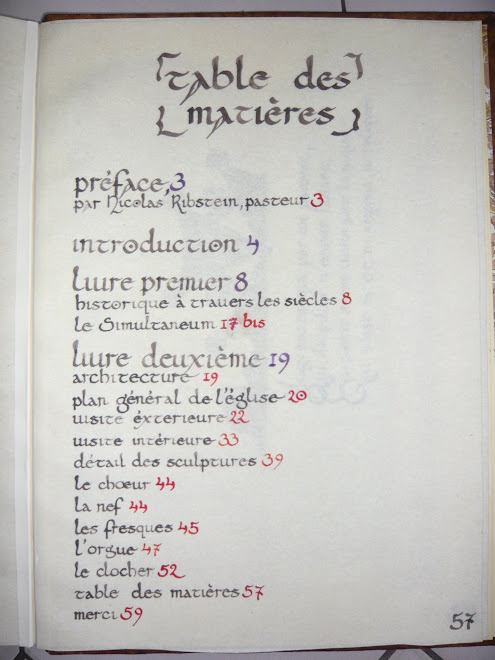 table des
matières
préface,3
par Nicolas Ribstein, pasteur 3
introduction 4
livre premier 8
historique à travers les siècles 8
le Simultaneum 17 bis
livre deuxième 19
architecture 19
plan général de l'église 20
visite éxterieure 22
visite intérieure 33
détail des sculptures 39
le chœur 44
la nef 44
les fresques 45
l'orgue 47
le clocher 52
table des matières 57
merci 59
57